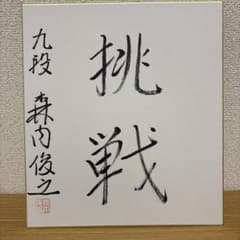 挑戦
九段 森内俊之